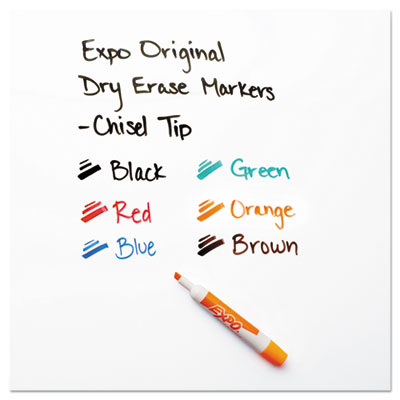 Expo Original
Dry Erase Markers
-Chisel Tip
Black
Green
Red
Orange
Blue
Brown
EXPO